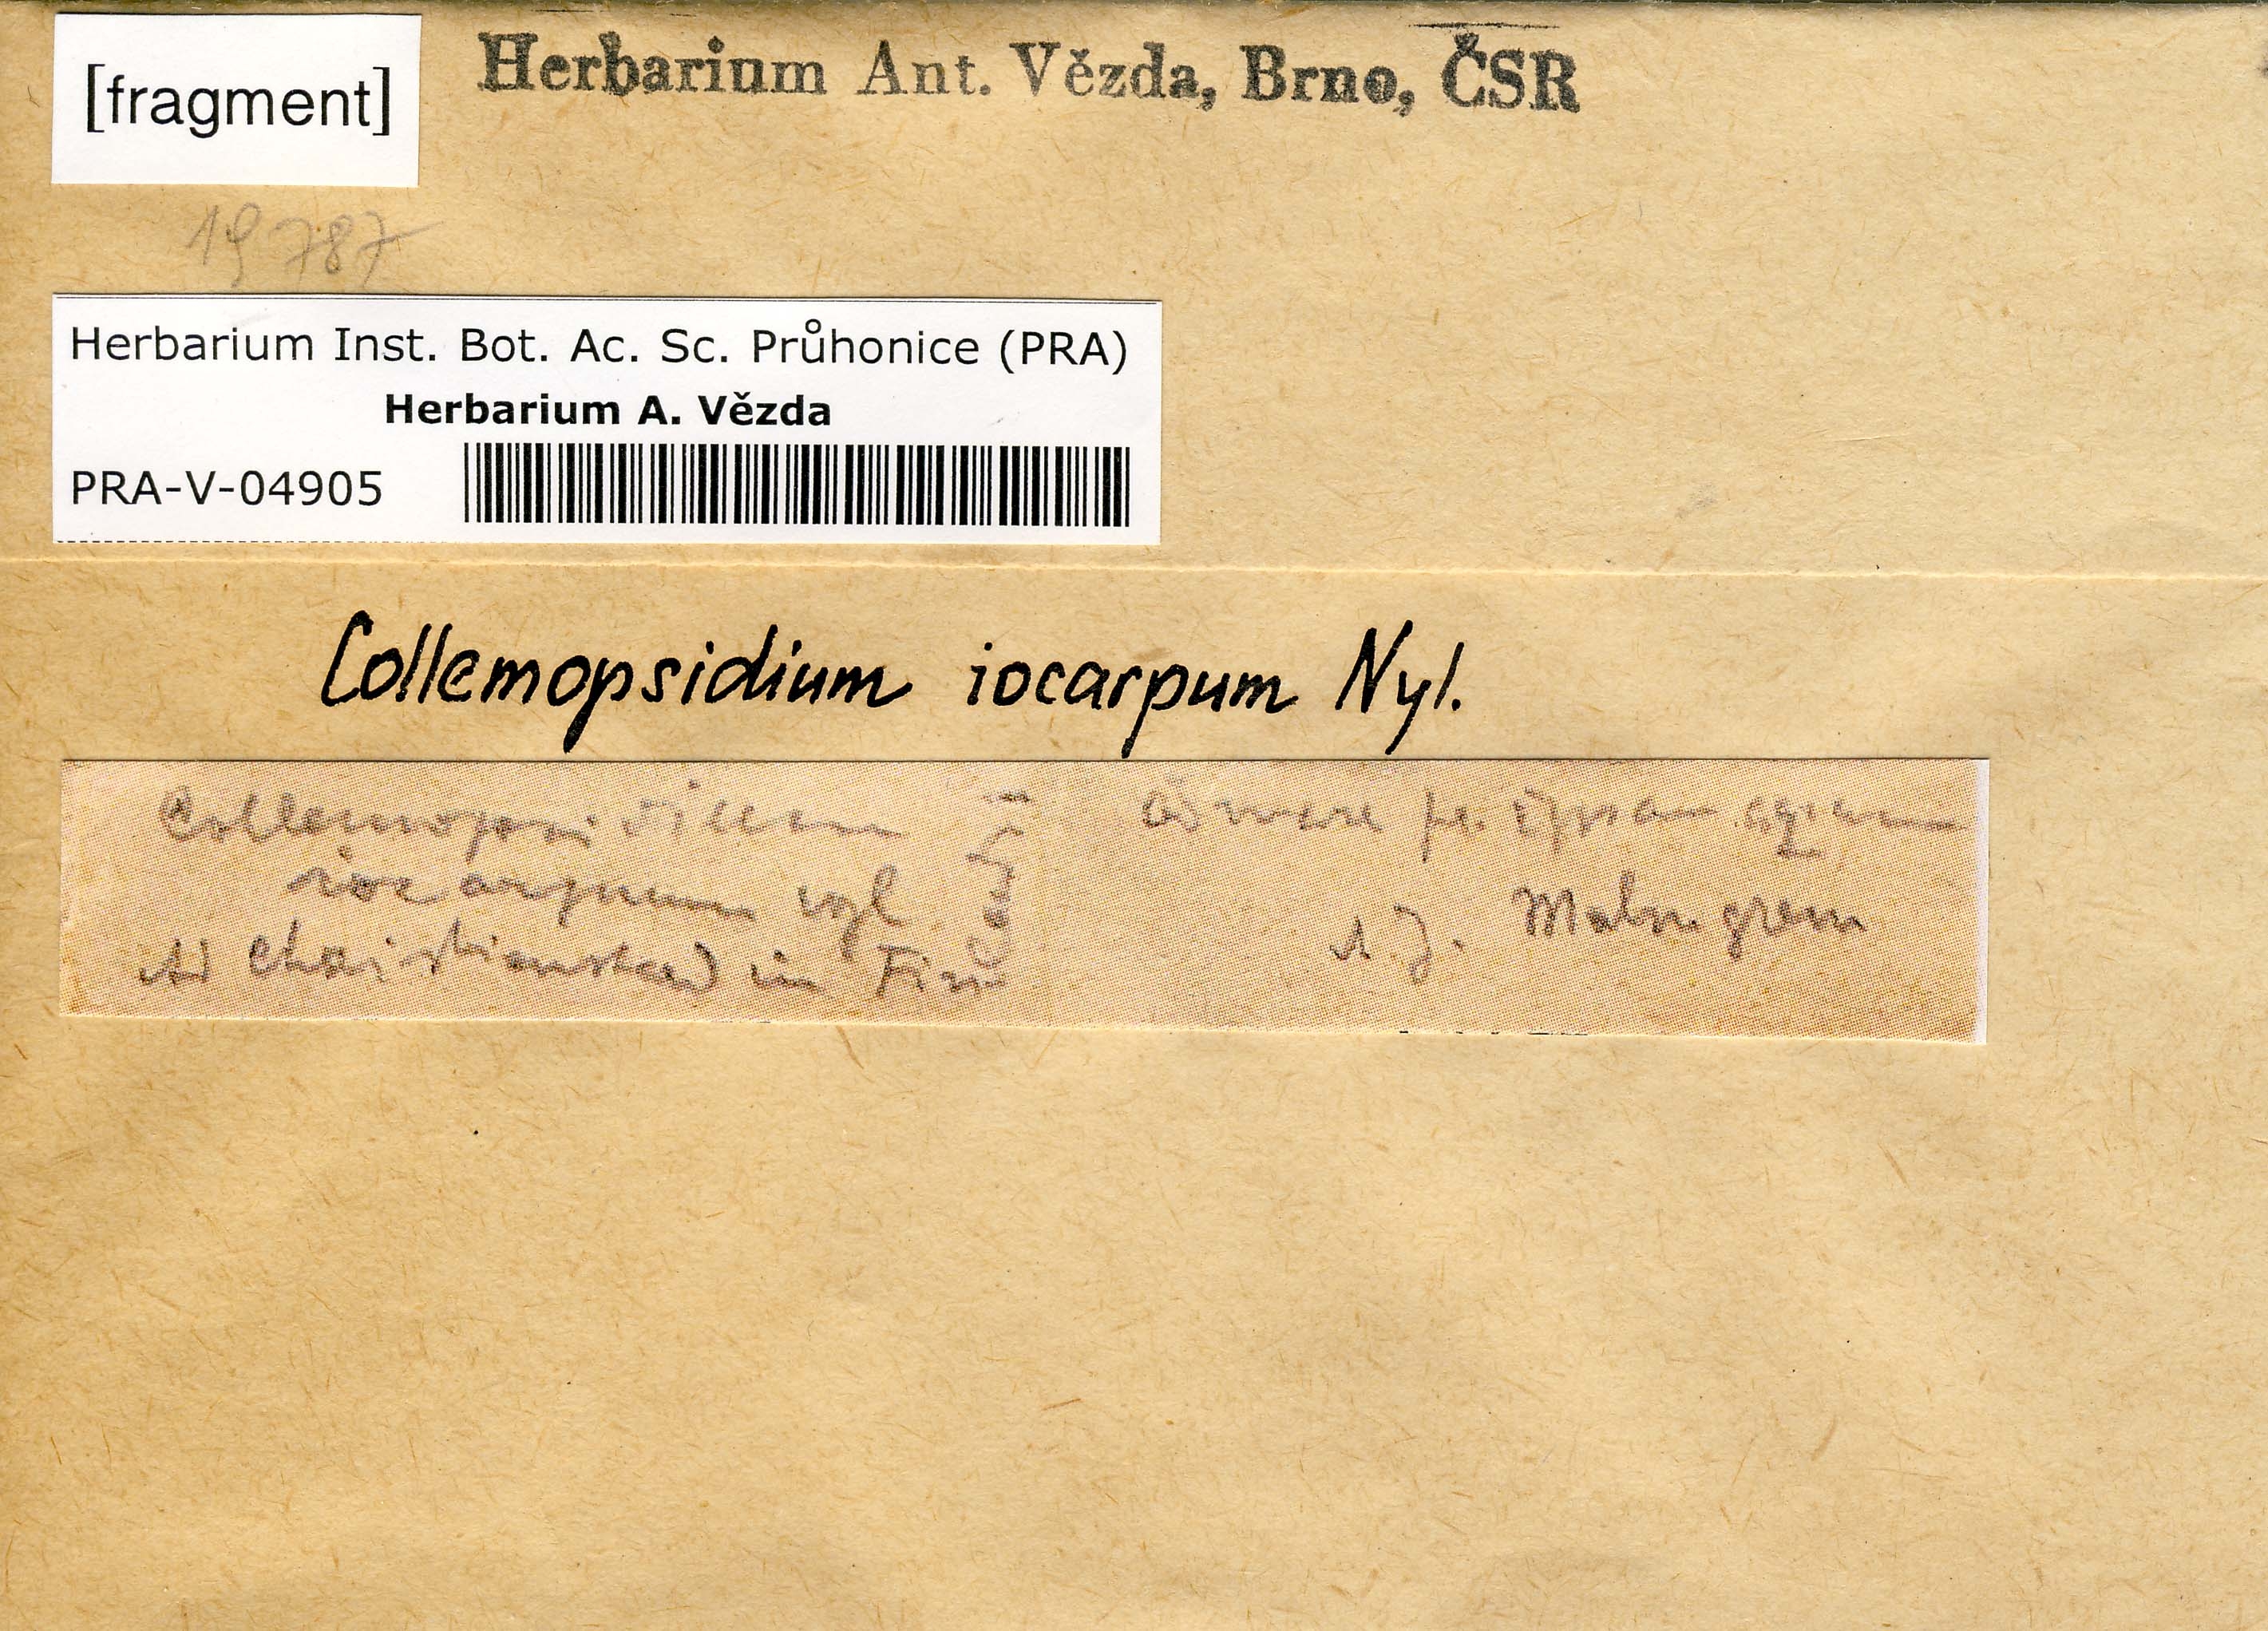 [fragment]
Herbarium Ant. Vězda, Brno, ČSR
19787
Herbarium Inst. Bot. Ac. Sc. Průhonice (PRA)
Herbarium A. Vězda
PRA-V-04905
Collemopsidium iocarpum Nyl.
Collemopsidium
iocarpum
Ad Christianstad in
ad mare
A. J. Malmgren